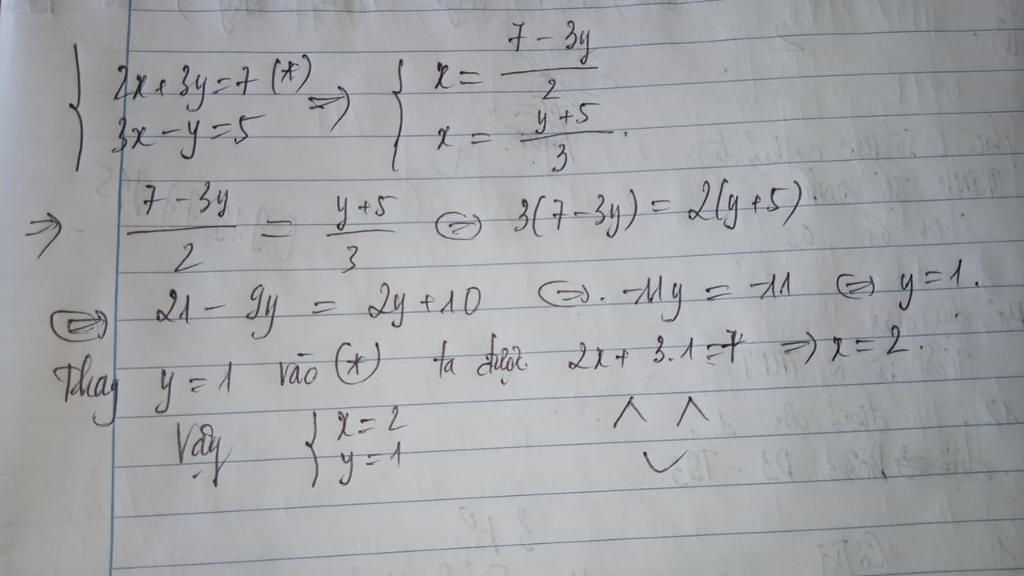 { 2x + 3y = 7 (*) ⇒ { x = (7 - 3y)/2
{ 3x - y = 5 { x = (y + 5)/3.
⇒ (7 - 3y)/2 = (y + 5)/3 ⇔ 3(7 - 3y) = 2(y + 5).
⇔ 21 - 9y = 2y + 10 ⇔. -11y = -11 ⇔ y = 1.
Thay y = 1 vào (*) ta được 2x + 3.1 = 7 ⇒ x = 2.
Vậy { x = 2
{ y = 1